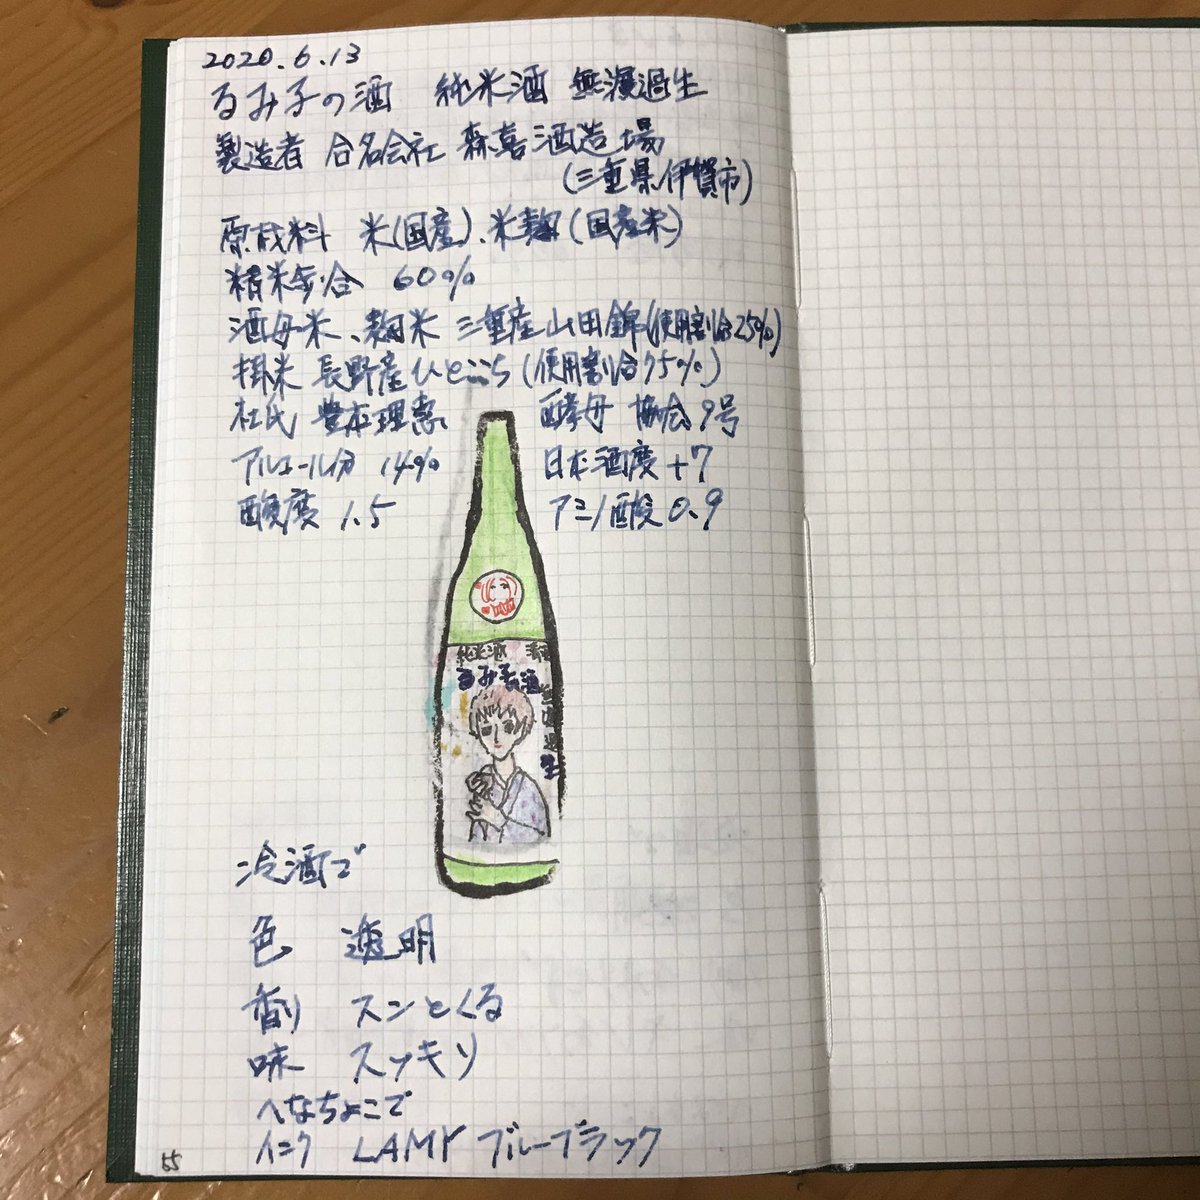 2020.6.13
るみ子の酒 純米酒 無濾過生
製造者 合名会社 森喜酒造場
(三重県伊賀市)
原材料 米(国産)、米麹(国産米)
精米歩合 60%
酒母米、麹米 三重産山田錦(使用割合25%)
掛米 長野産ひとごこち(使用割合75%)
杜氏 豊本理恵 酵母 協会9号
アルコール分 14% 日本酒度+7
酸度 1.5 アミノ酸 0.9
純米酒 清酒
るみ子の酒
無濾過生
冷酒で
色 透明
香り スンとくる
味 スッキリ
へなちょこで
インク LAMY ブルーブラック
55